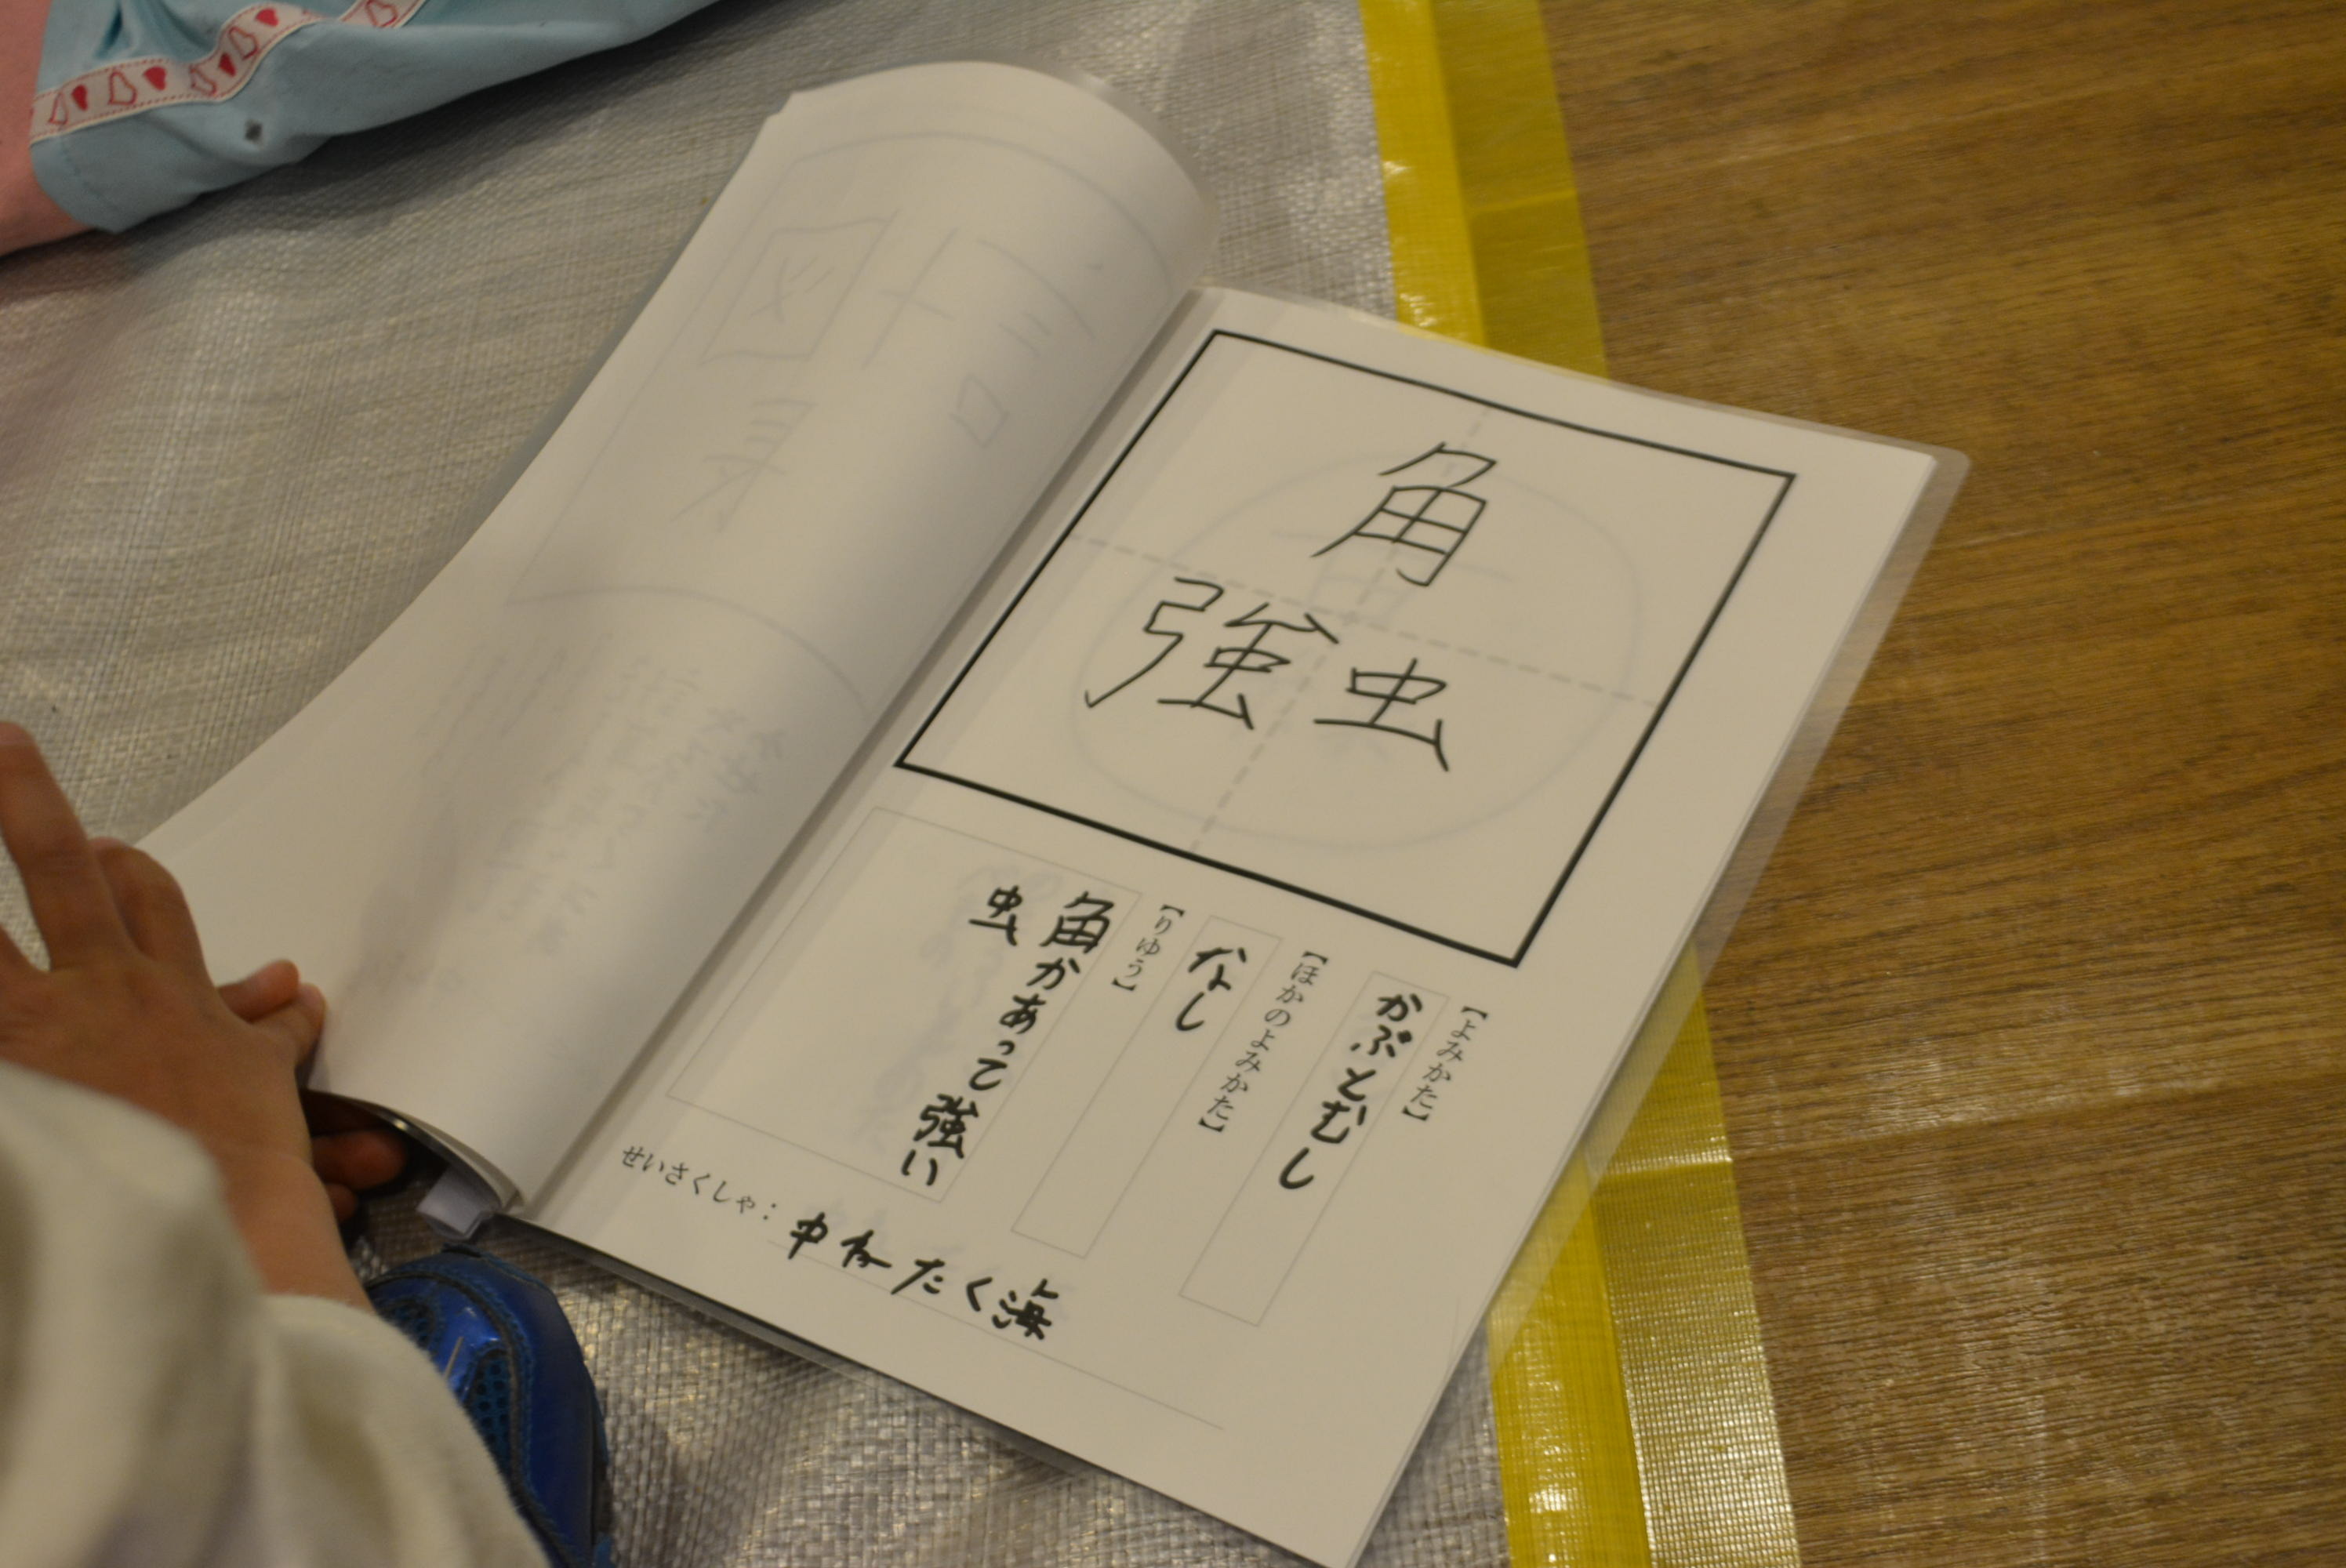 角
強虫
【よみかた】
かぶとむし
【ほかのよみかた】
なし
【りゆう】
角かあって強い
虫
せいさくしゃ：中たく海